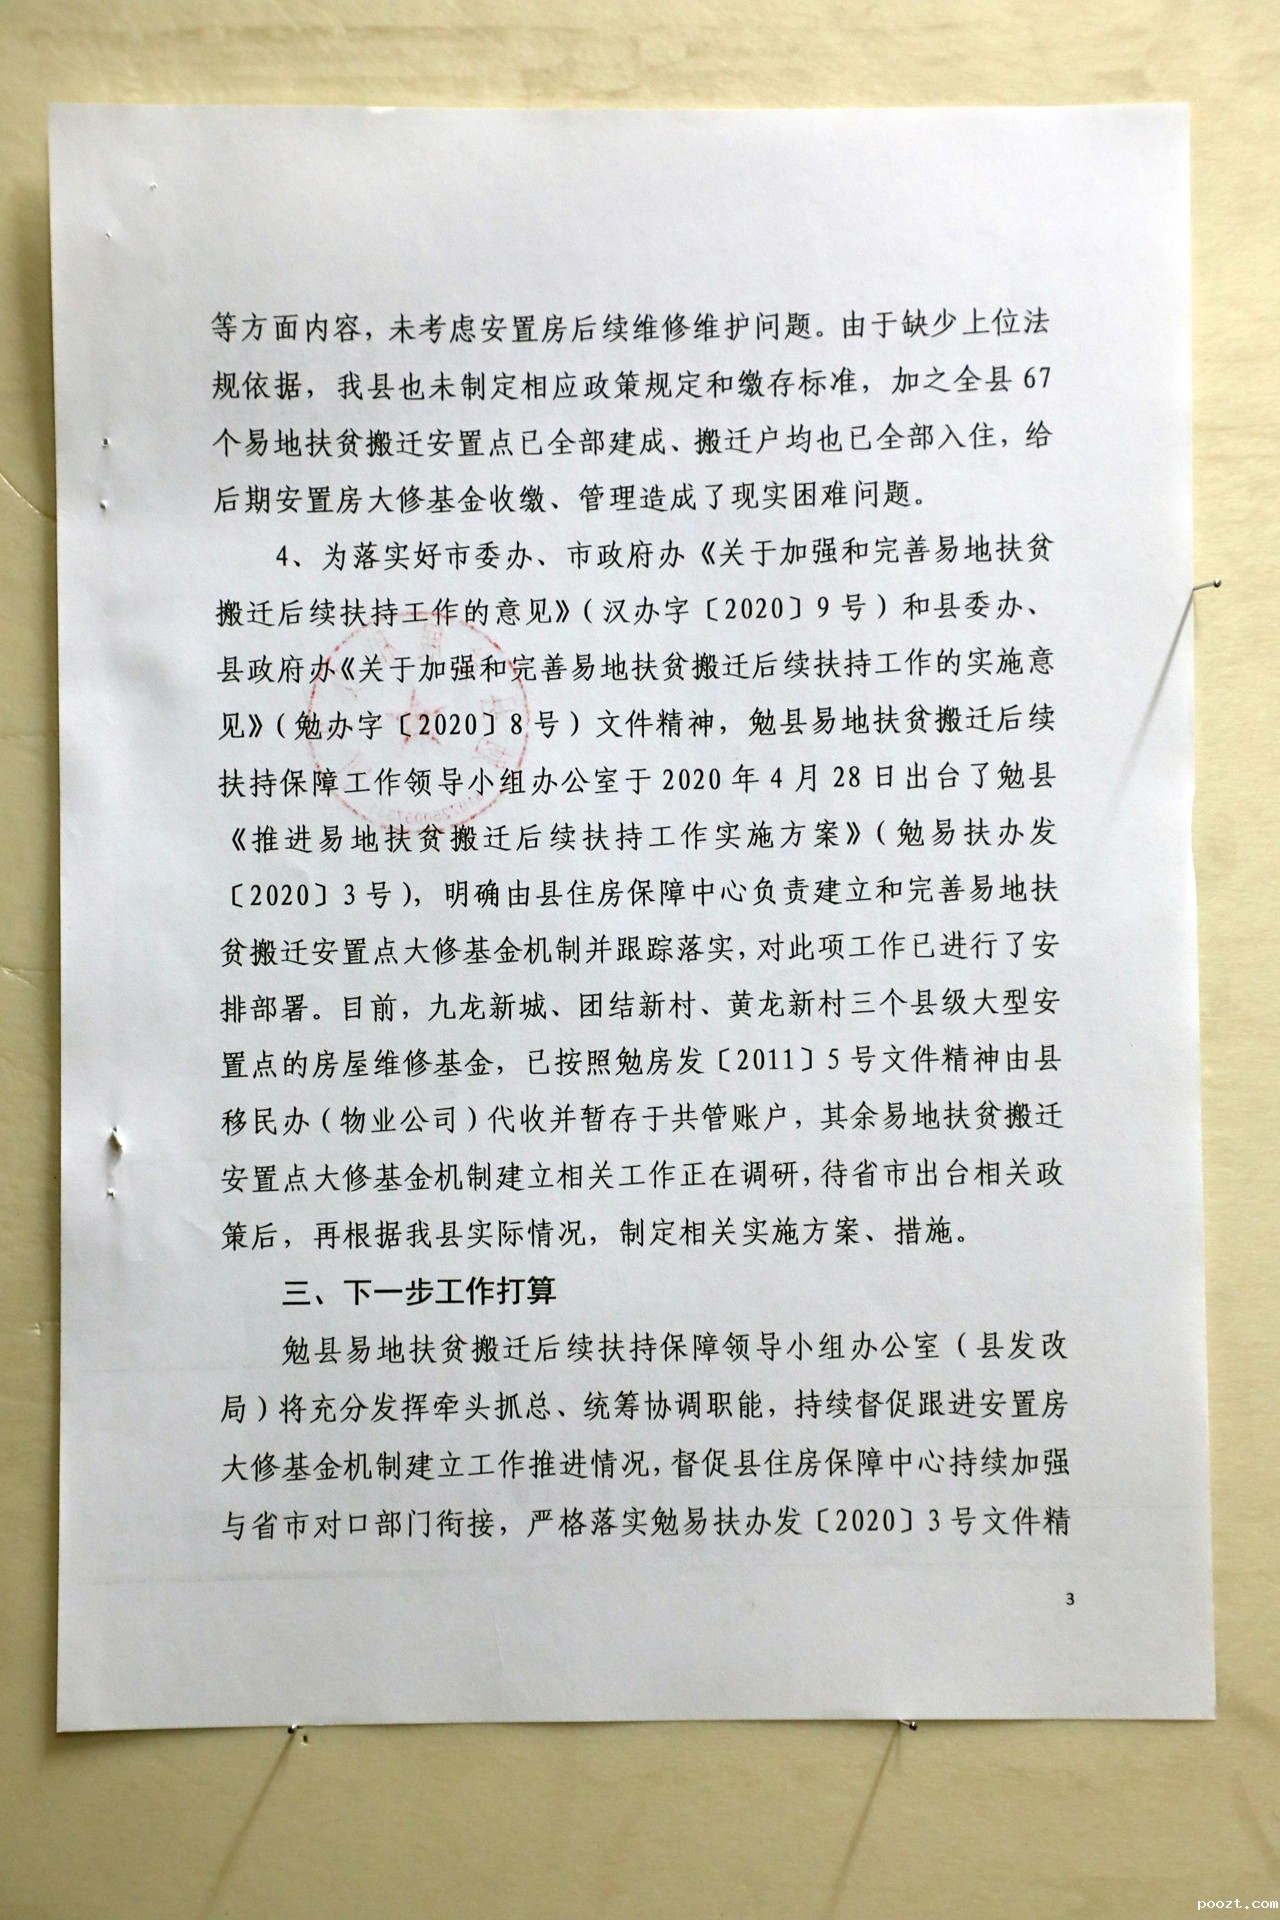 等方面内容，未考虑安置房后续维修维护问题。由于缺少上位法
规依据，我县也未制定相应政策规定和缴存标准，加之全县 67
个易地扶贫搬迁安置点已全部建成、搬迁户均也已全部入住，给
后期安置房大修基金收缴、管理造成了现实困难问题。
4、为落实好市委办、市政府办《关于加强和完善易地扶贫
搬迁后续扶持工作的意见》（汉办字〔2020〕9 号）和县委办、
县政府办《关于加强和完善易地扶贫搬迁后续扶持工作的实施意
见》（勉办字〔2020〕8 号）文件精神，勉县易地扶贫搬迁后续
扶持保障工作领导小组办公室于 2020 年 4 月 28 日出台了勉县
《推进易地扶贫搬迁后续扶持工作实施方案》（勉易扶办发
〔2020〕3 号），明确由县住房保障中心负责建立和完善易地扶
贫搬迁安置点大修基金机制并跟踪落实，对此项工作已进行了安
排部署。目前，九龙新城、团结新村、黄龙新村三个县级大型安
置点的房屋维修基金，已按照勉房发〔2011〕5 号文件精神由县
移民办（物业公司）代收并暂存于共管账户，其余易地扶贫搬迁
安置点大修基金机制建立相关工作正在调研，待省市出台相关政
策后，再根据我县实际情况，制定相关实施方案、措施。
三、下一步工作打算
勉县易地扶贫搬迁后续扶持保障领导小组办公室（县发改
局）将充分发挥牵头抓总、统筹协调职能，持续督促跟进安置房
大修基金机制建立工作推进情况，督促县住房保障中心持续加强
与省市对口部门衔接，严格落实勉易扶办发〔2020〕3 号文件精
3
poozt.com